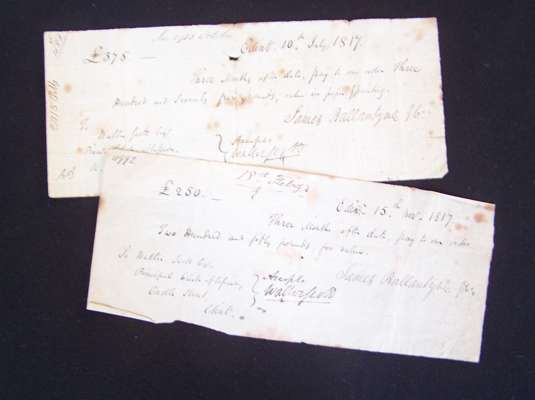 £375 — Edinr. 10th July 1817.
Three Months after date, pay to our order Three
Hundred and Seventy five pounds, value in
James Ballantyne & Co.
To
Walter Scott Esqr.
Accepts
Walter Scott
£250. — Edinr. 15th Novr. 1817.
Three Months after date, pay to our order
Two Hundred and fifty pounds for value.
James Ballantyne & Co.
To Walter Scott Esqr.
Principal Clerk of Session,
Castle Street,
Edinr.
Accepts
Walter Scott